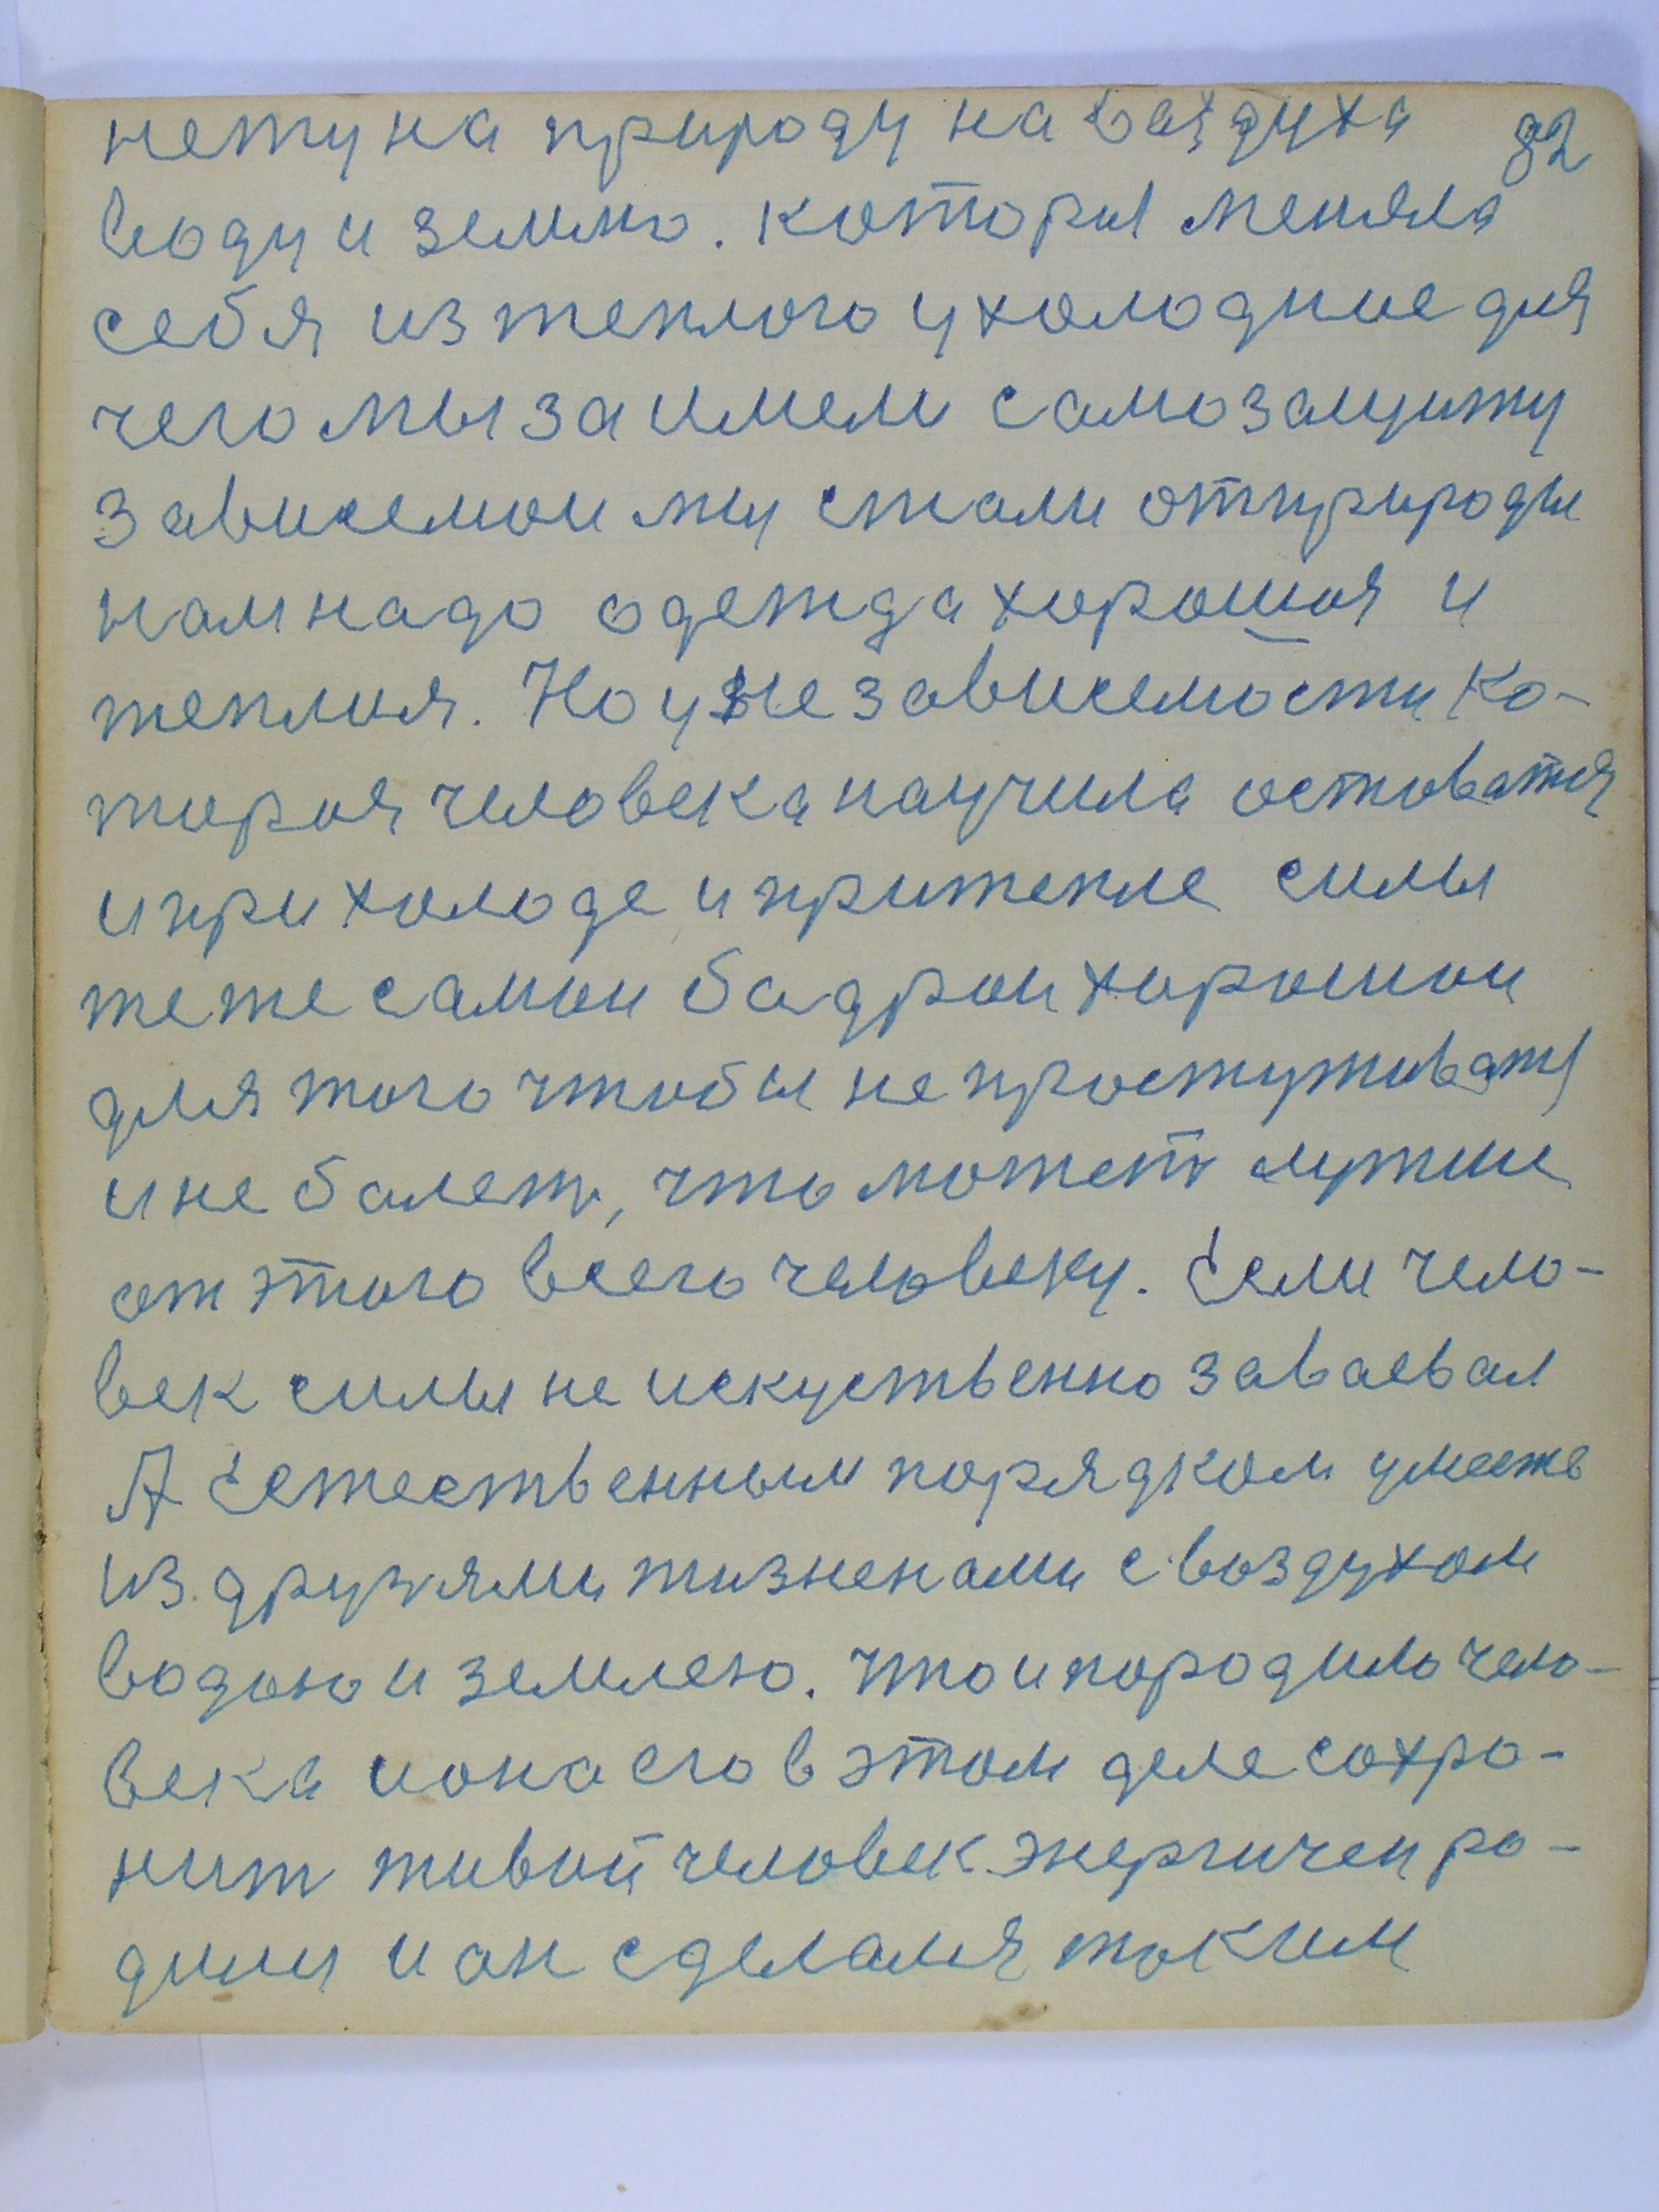 нету на природу на ваздуха 82
воду и землю. которы меняла
себя из теплого у холодние для
чего мы за имели самозащиту
Зависемои мы стали от природы
нам надо одежда хорошоя и
теплоя. Но у независемости ко-
тороя человека научила остоватя
и при холоде и притепле силы
те же самои бадрои хорошои
для того чтобы не простуживать
и не балеть, что может лутше
от этого всего человеку. Если чело-
век силы не искуственно заваевал
А Естественным порядком умести
из друзями жизненами с воздухом
водою и землею. что и породило чело-
века и она его в этом деле сохро-
нит живой человек энергичеи ро-
дили и он сделался таким